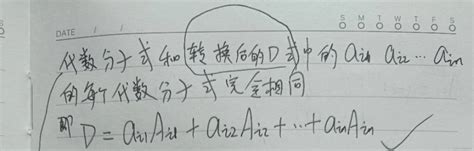 DATE / /
S M T W T F S
代数分子式和转换后的D式中的 ai1 ai2 … ain
的每个代数分子式完全相同
即 D = ai1Ai1 + ai2Ai2 + … + ainAin